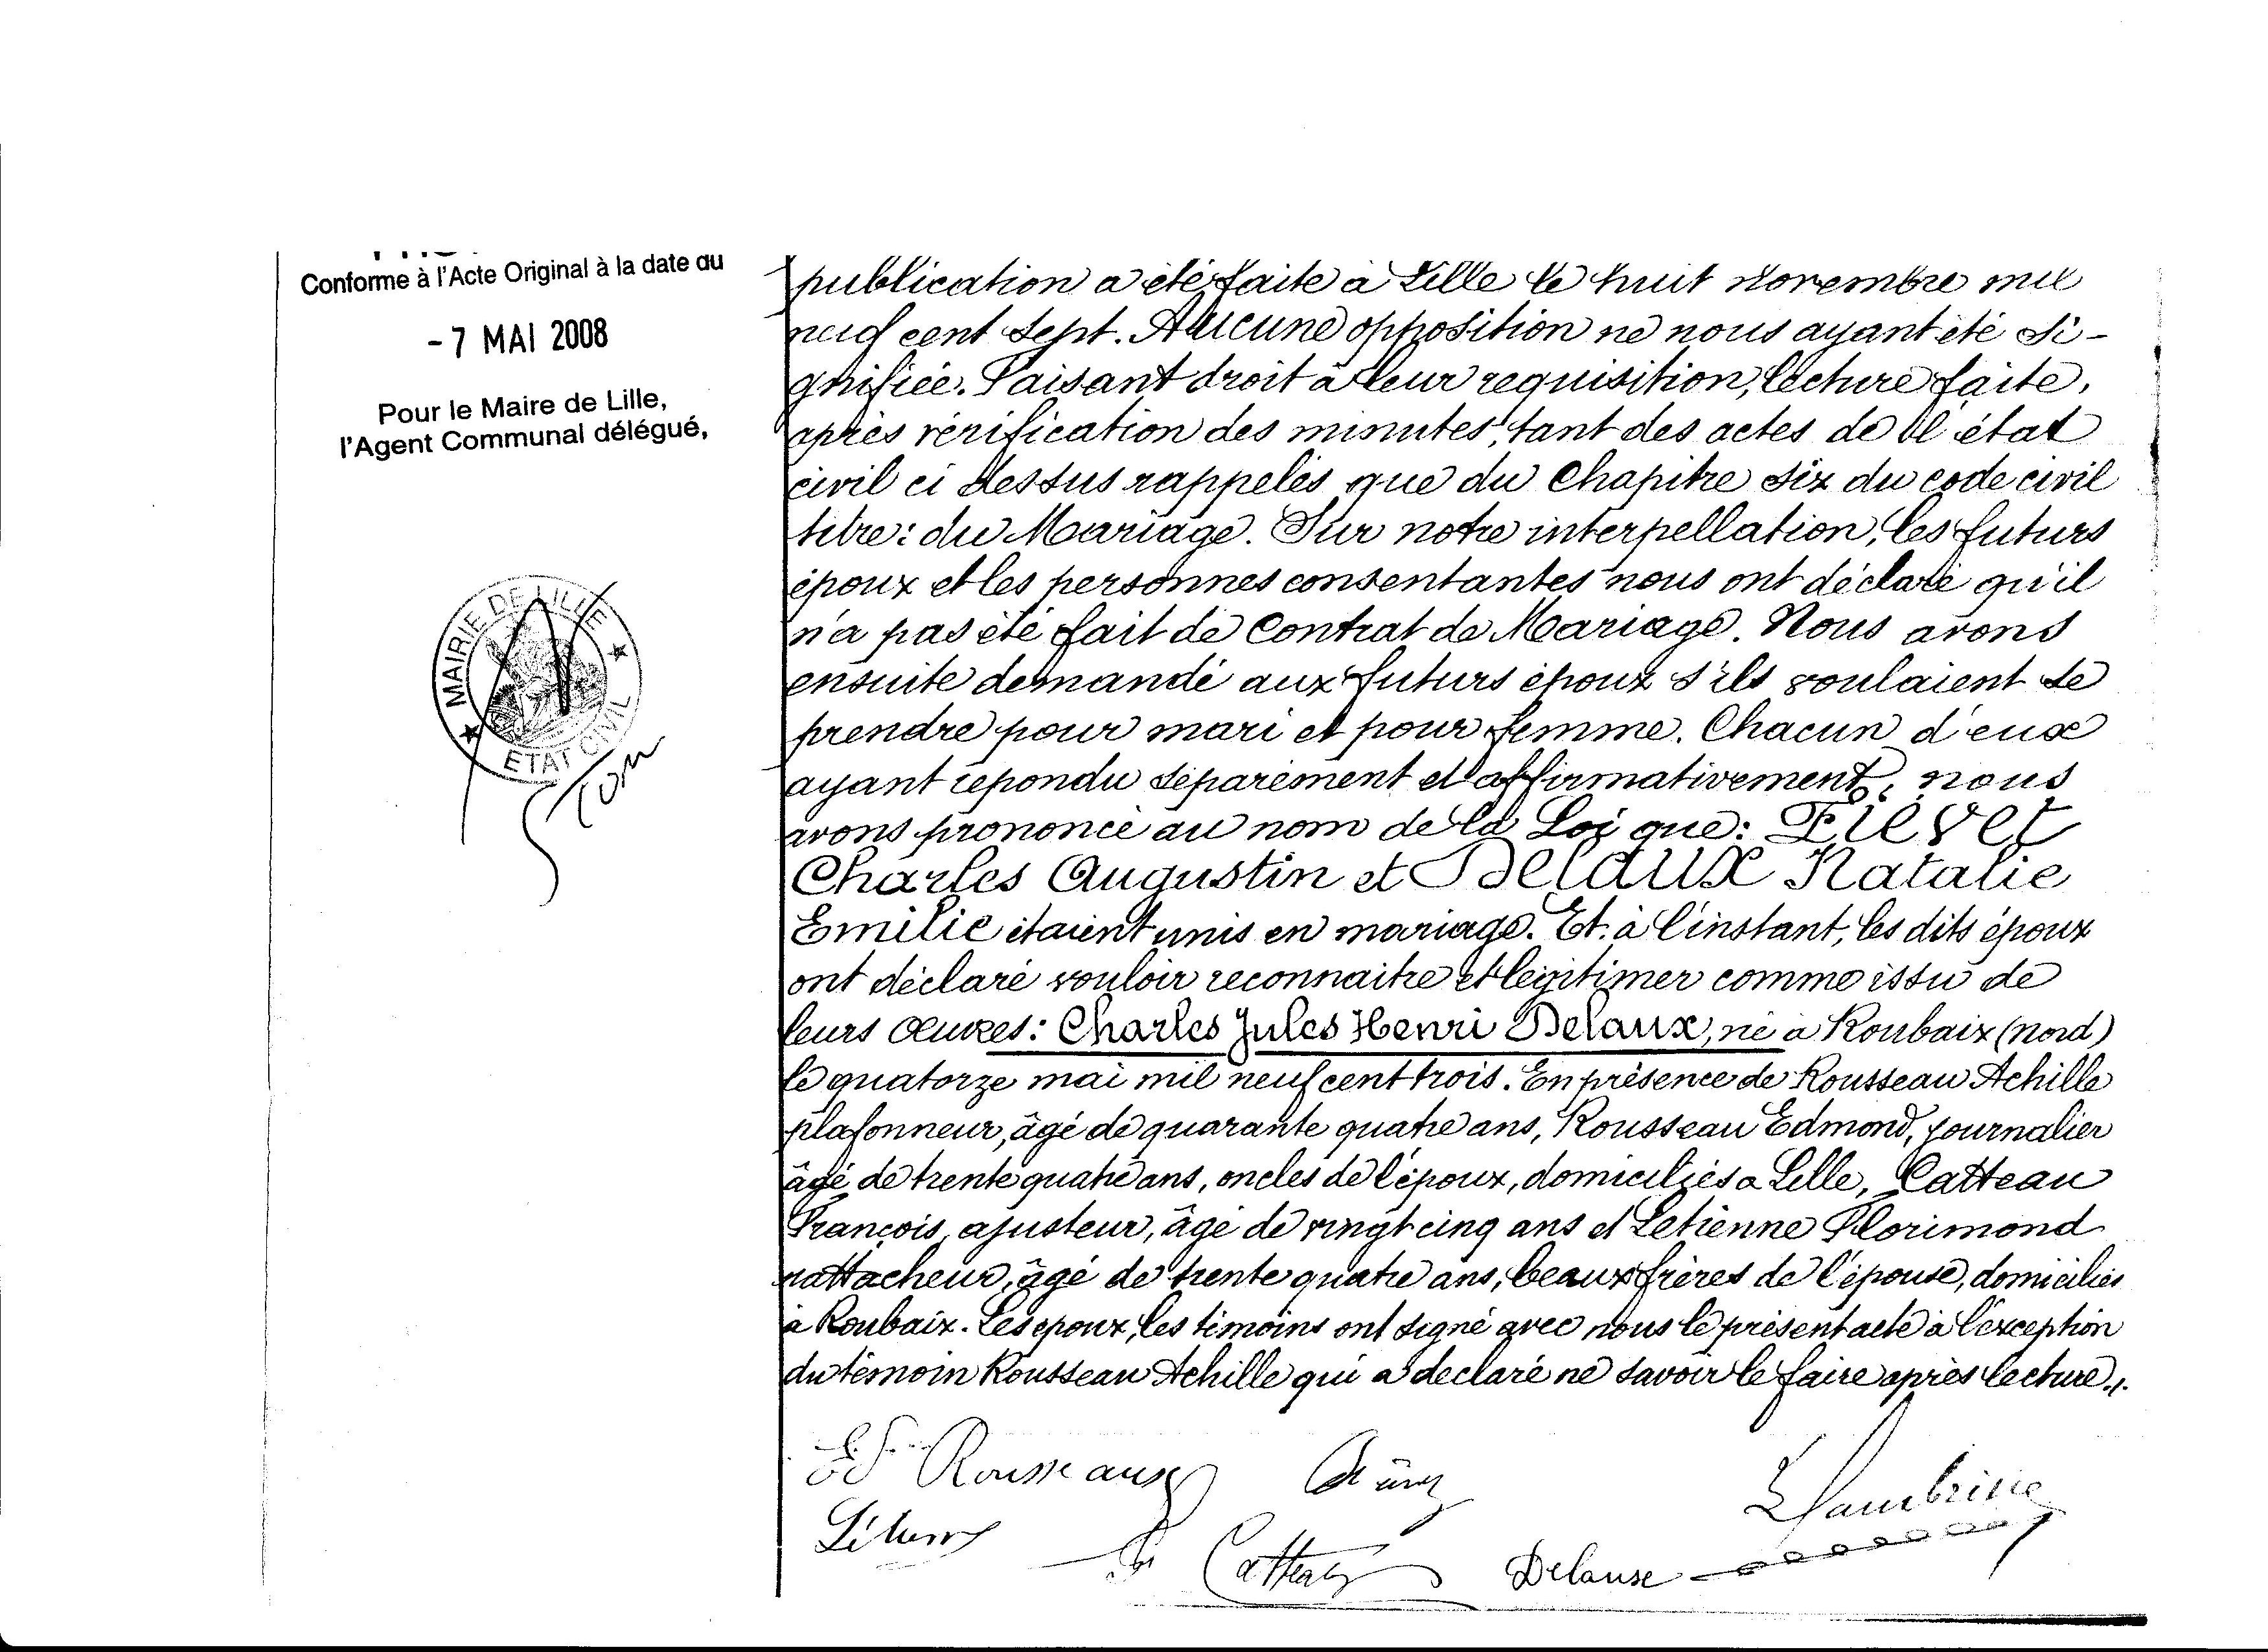 Conforme à l'Acte Original à la date du
-7 MAI 2008
Pour le Maire de Lille,
l'Agent Communal délégué,
MAIRIE DE LILLE
ETAT CIVIL
publication a été faite à Lille le huit novembre mil
neuf cent sept. Aucune opposition ne nous ayant été si-
gnifiée. Faisant droit à leur requisition, lecture faite,
après vérification des minutes, tant des actes de l'état
civil ci dessus rappelés que du Chapitre six du code civil
titre: du Mariage. Sur notre interpellation, les futurs
époux et les personnes consentantes nous ont déclaré qu'il
n'a pas été fait de Contrat de Mariage. Nous avons
ensuite demandé aux futurs époux s'ils voulaient se
prendre pour mari et pour femme. Chacun d'eux
ayant répondu séparément et affirmativement, nous
avons prononcé au nom de la Loi que: Fiévet
Charles Augustin et Delaux Natalie
Emilie étaient unis en mariage. Et à l'instant, les dits époux
ont déclaré vouloir reconnaitre et légitimer comme issu de
leurs Œuvres: Charles Jules Henri Delaux, né à Roubaix (nord)
le quatorze mai mil neuf cent trois. En présence de Rousseau Achille
plafonneur, âgé de quarante quatre ans, Rousseau Edmond, journalier
âgé de trente quatre ans, oncles de l'époux, domiciliés à Lille, Catteau
François, ajusteur, âgé de vingt cinq ans et Letienne Florimond
rattacheur, âgé de trente quatre ans, beaux frères de l'épouse, domiciliés
à Roubaix. Les époux, les témoins ont signé avec nous le présent acte à l'exception
du témoin Rousseau Achille qui a déclaré ne savoir le faire après lecture.
Rousseaux
Catteau Delause